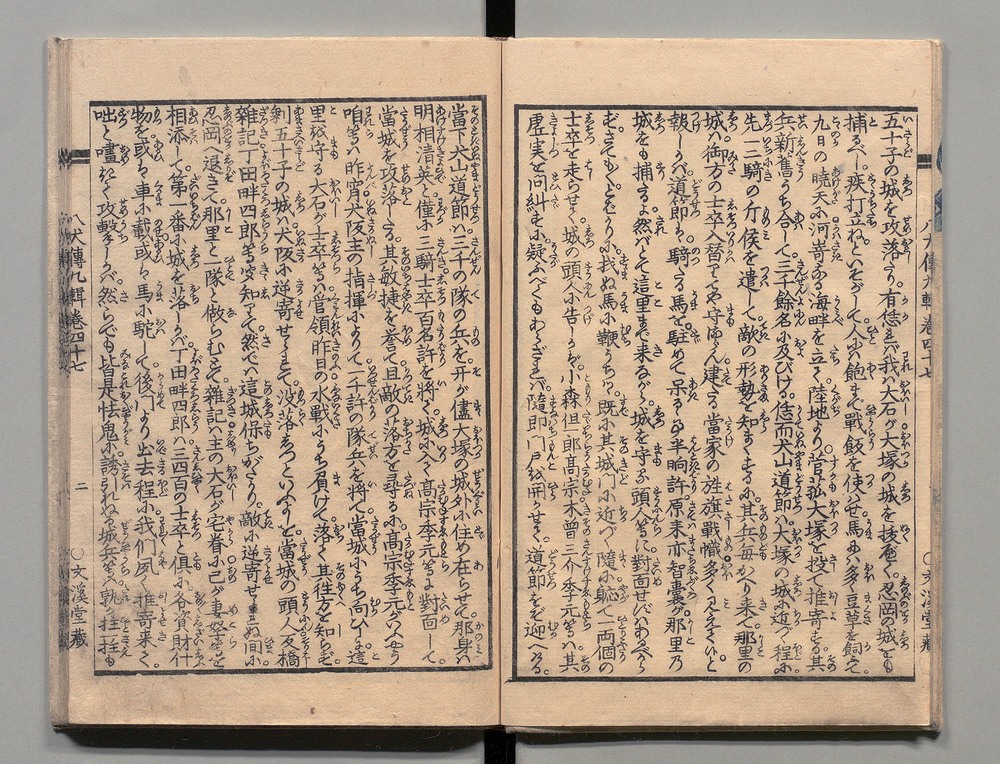 五十子の城を攻落さり。有恁れバ我ハ大石が大塚の城を技を。忍岡の城をも
捕るべし。疾打立ねといそがして。人ハ飽まで戰飯を使せ。馬にハ多く豆草を飼せて。
九日の曉天に河嵜なる海畔を立て。陸地より。菅菰大塚を投て推寄る。其
兵新舊うち合して。三千餘名に及びけり。恁而犬山道節ハ。大塚の城に近づく程に。
先二三騎の斥候を遣して。敵の形勢を知まくするに。其兵毎かへり來て。那里の
城ハ御方の士卒入替てや守るらん。建る當家の旌旗戰幟多く見えたりと
報しかバ。道節ハ騎たる馬を駐めて。呆るゝ事半晌許。原來亦智囊が。那里乃
城をも捕るよ。然バとて這里まで來ながら。城を守る頭人等に對面せバわろかり
なん。さてもとばかりに。找ぬ馬に鞭うちて。既に其城門に近づく隨に。軈て一両個の
士卒を走らせて。城の頭人に告しかバ。小森但一郎高宗木曾三介季元等ハ。其
虛実を問糾すに。疑ふべくもあらざれバ。隨即門戸を開かせて。道節をぞ迎へける。
八犬傳九輯卷四十七
〇文溪堂藏
當下犬山道節ハ。三千の隊の兵を。开が儘大塚の城外に住め在らせて。那身ハ
明相清英と。僅に三騎士卒百名許を將て。城に入て高宗季元等に對面して。
當城を攻落しゝ。其敏捷を譽て。且敵の落方を尋るに。高宗季元答るやう。
咱等ハ昨宵犬阪主の指揮によりて。一千許の隊兵を將て。當城に向ひしに。這
里を守る大石が士卒等ハ。管領昨日の水戰にうち負けて。落て其往方を知らず。
剩五十子の城ハ。犬阪に逆寄せられて。没落しつといふよしを。當城の頭人友橋
雜記丁田畔四郎等。定知りて。然でハ這城保ちがたかり。敵に逆寄せられぬ間に。
忍岡へ退きて。那里と一隊に做らむとて。雜記ハ主の大石が宅眷に。己が妻孥をも
相添して。第一番に城を落しかバ。丁田畔四郎ハ。三四百の士卒と俱に。各資財什
物を。或ハ車に載。或ハ馬に駝して。後門より出去程に。我們夙く推寄來て。
咄と嚱きて攻擊しかバ。然らでも皆是怯鬼に誘引れぬる城兵等。孰か一拄も
八犬傳九輯卷四十七
二
〇文溪堂藏